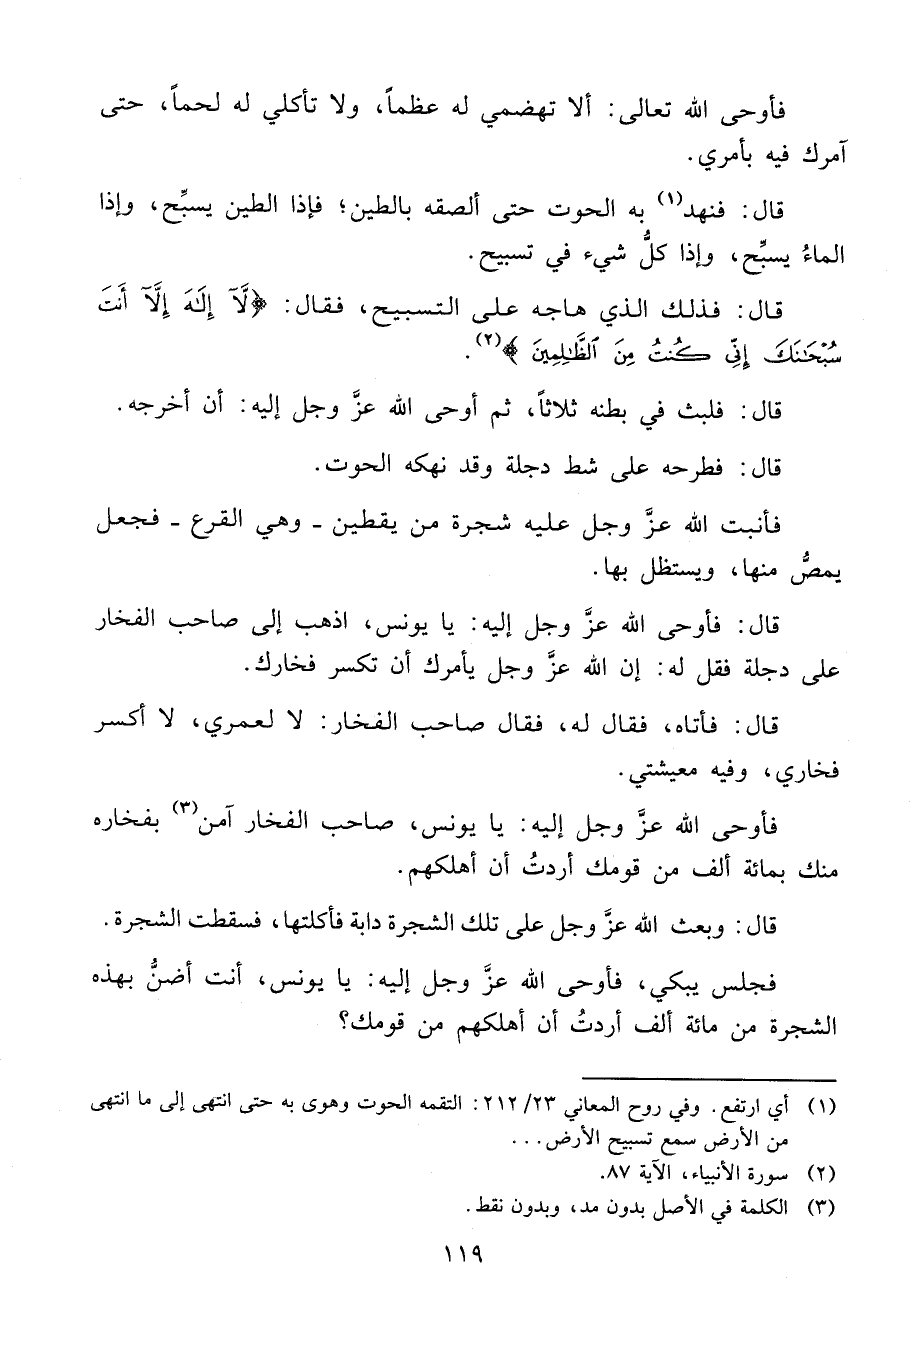 فأوحى الله تعالى: ألا تهضمي له عظماً، ولا تأكلي له لحماً، حتى
آمرك فيه بأمري.
قال: فنهد(١) به الحوت حتى ألصقه بالطين؛ فإذا الطين يسبِّح، وإذا
الماءُ يسبِّح، وإذا كلُّ شيء في تسبيح.
قال: فذلك الذي هاجه على التسبيح، فقال: ﴿لَّآ إِلَٰهَ إِلَّآ أَنتَ
سُبْحَٰنَكَ إِنِّى كُنتُ مِنَ ٱلظَّٰلِمِينَ﴾(٢).
قال: فلبث في بطنه ثلاثاً، ثم أوحى الله عزَّ وجل إليه: أن أخرجه.
قال: فطرحه على شط دجلة وقد نهكه الحوت.
فأنبت الله عزَّ وجل عليه شجرة من يقطين ـ وهي القرع ـ فجعل
يمصُّ منها، ويستظل بها.
قال: فأوحى الله عزَّ وجل إليه: يا يونس، اذهب إلى صاحب الفخار
على دجلة فقل له: إن الله عزَّ وجل يأمرك أن تكسر فخارك.
قال: فأتاه، فقال له، فقال صاحب الفخار: لا لعمري، لا أكسر
فخاري، وفيه معيشتي.
فأوحى الله عزَّ وجل إليه: يا يونس، صاحب الفخار آمن(٣) بفخاره
منك بمائة ألف من قومك أردتُ أن أهلكهم.
قال: وبعث الله عزَّ وجل على تلك الشجرة دابة فأكلتها، فسقطت الشجرة.
فجلس يبكي، فأوحى الله عزَّ وجل إليه: يا يونس، أنت أضنُّ بهذه
الشجرة من مائة ألف أردتُ أن أهلكهم من قومك؟
(١) أي ارتفع. وفي روح المعاني ٢٣/ ٢١٢: التقمه الحوت وهوى به حتى انتهى إلى ما انتهى
من الأرض سمع تسبيح الأرض...
(٢) سورة الأنبياء، الآية ٨٧.
(٣) الكلمة في الأصل بدون مد، وبدون نقط.
١١٩